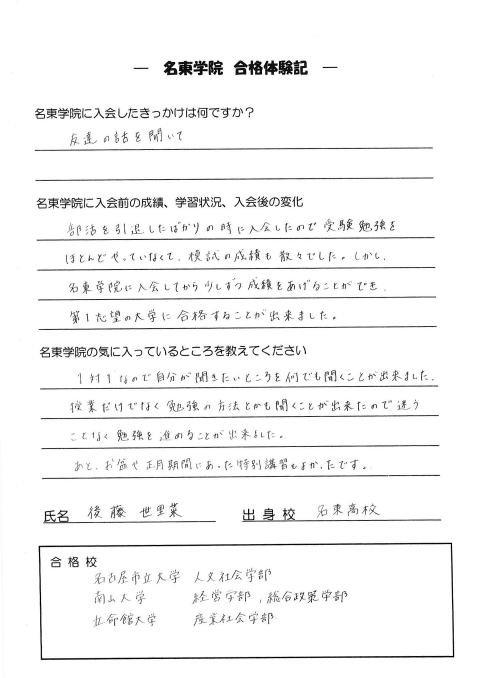 ― 名東学院 合格体験記 ―
名東学院に入会したきっかけは何ですか？
友達の話を聞いて
名東学院に入会前の成績、学習状況、入会後の変化
部活を引退したばかりの時に入会したので受験勉強を
ほとんどやっていなくて、模試の成績も散々でした。しかし、
名東学院に入会してから少しずつ成績をあげることができ、
第1志望の大学に合格することが出来ました。
名東学院の気に入っているところを教えてください
1対1なので自分が聞きたいところを何でも聞くことが出来ました。
授業だけでなく勉強の方法とかも聞くことが出来たので迷う
ことなく勉強を進めることが出来ました。
あと、お盆や正月期間にあった特別講習もよかったです。
氏名 後藤 世里菜 出身校 名東高校
合格校
名古屋市立大学 人文社会学部
南山大学 経営学部、総合政策学部
立命館大学 産業社会学部